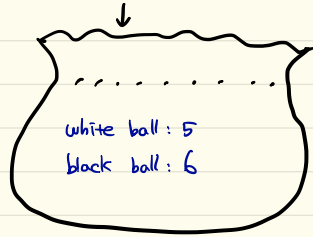 white ball: 5
black ball: 6